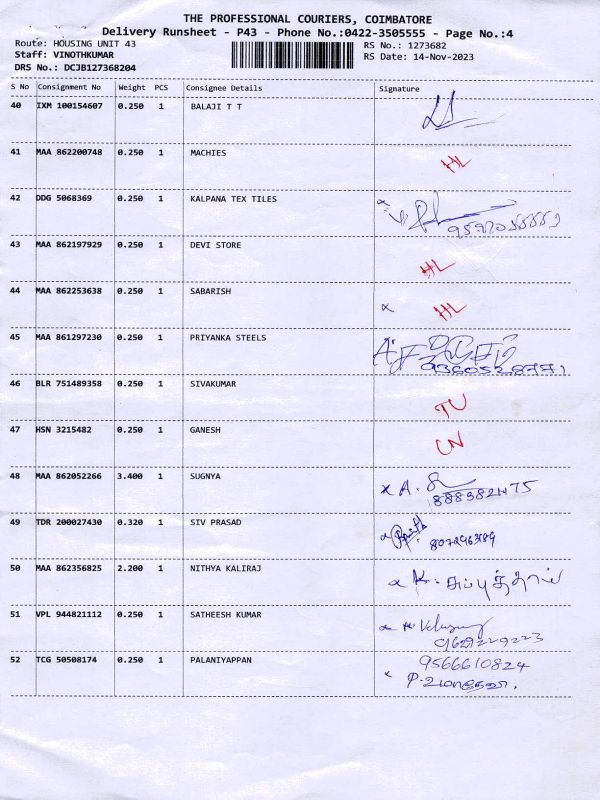 THE PROFESSIONAL COURIERS, COIMBATORE
Delivery Runsheet - P43 - Phone No.:0422-3505555 - Page No.:4
Route: HOUSING UNIT 43 RS No.: 1273682
Staff: VINOTHKUMAR RS Date: 14-Nov-2023
DRS No.: DCJB127368204
S No Consignment No Weight PCS Consignee Details Signature
40 IXM 100154607 0.250 1 BALAJI T T
41 MAA 862200748 0.250 1 MACHIES HL
42 DDG 5068369 0.250 1 KALPANA TEX TILES
43 MAA 862197929 0.250 1 DEVI STORE HL
44 MAA 862253638 0.250 1 SABARISH x HL
45 MAA 861297230 0.250 1 PRIYANKA STEELS
9360528771
46 BLR 751489358 0.250 1 SIVAKUMAR TU
47 HSN 3215482 0.250 1 GANESH CN
48 MAA 862052266 3.400 1 SUGNYA x A.
49 TDR 200027430 0.320 1 SIV PRASAD
50 MAA 862356825 2.200 1 NITHYA KALIRAJ x K.
51 VPL 944821112 0.250 1 SATHEESH KUMAR
9629229223
52 TCG 50508174 0.250 1 PALANIYAPPAN 9566610824